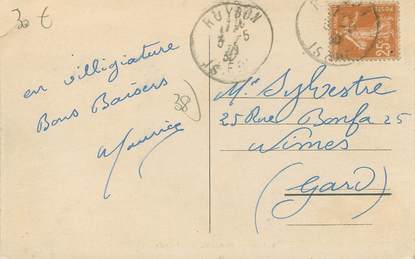 30 €
ROYBON
5-5
32
ISÈRE
25c
en villégiature
Bons Baisers
Maurice
38
Mr Sylvestre
25 Rue Bonfa 25
Nimes
(Gard)